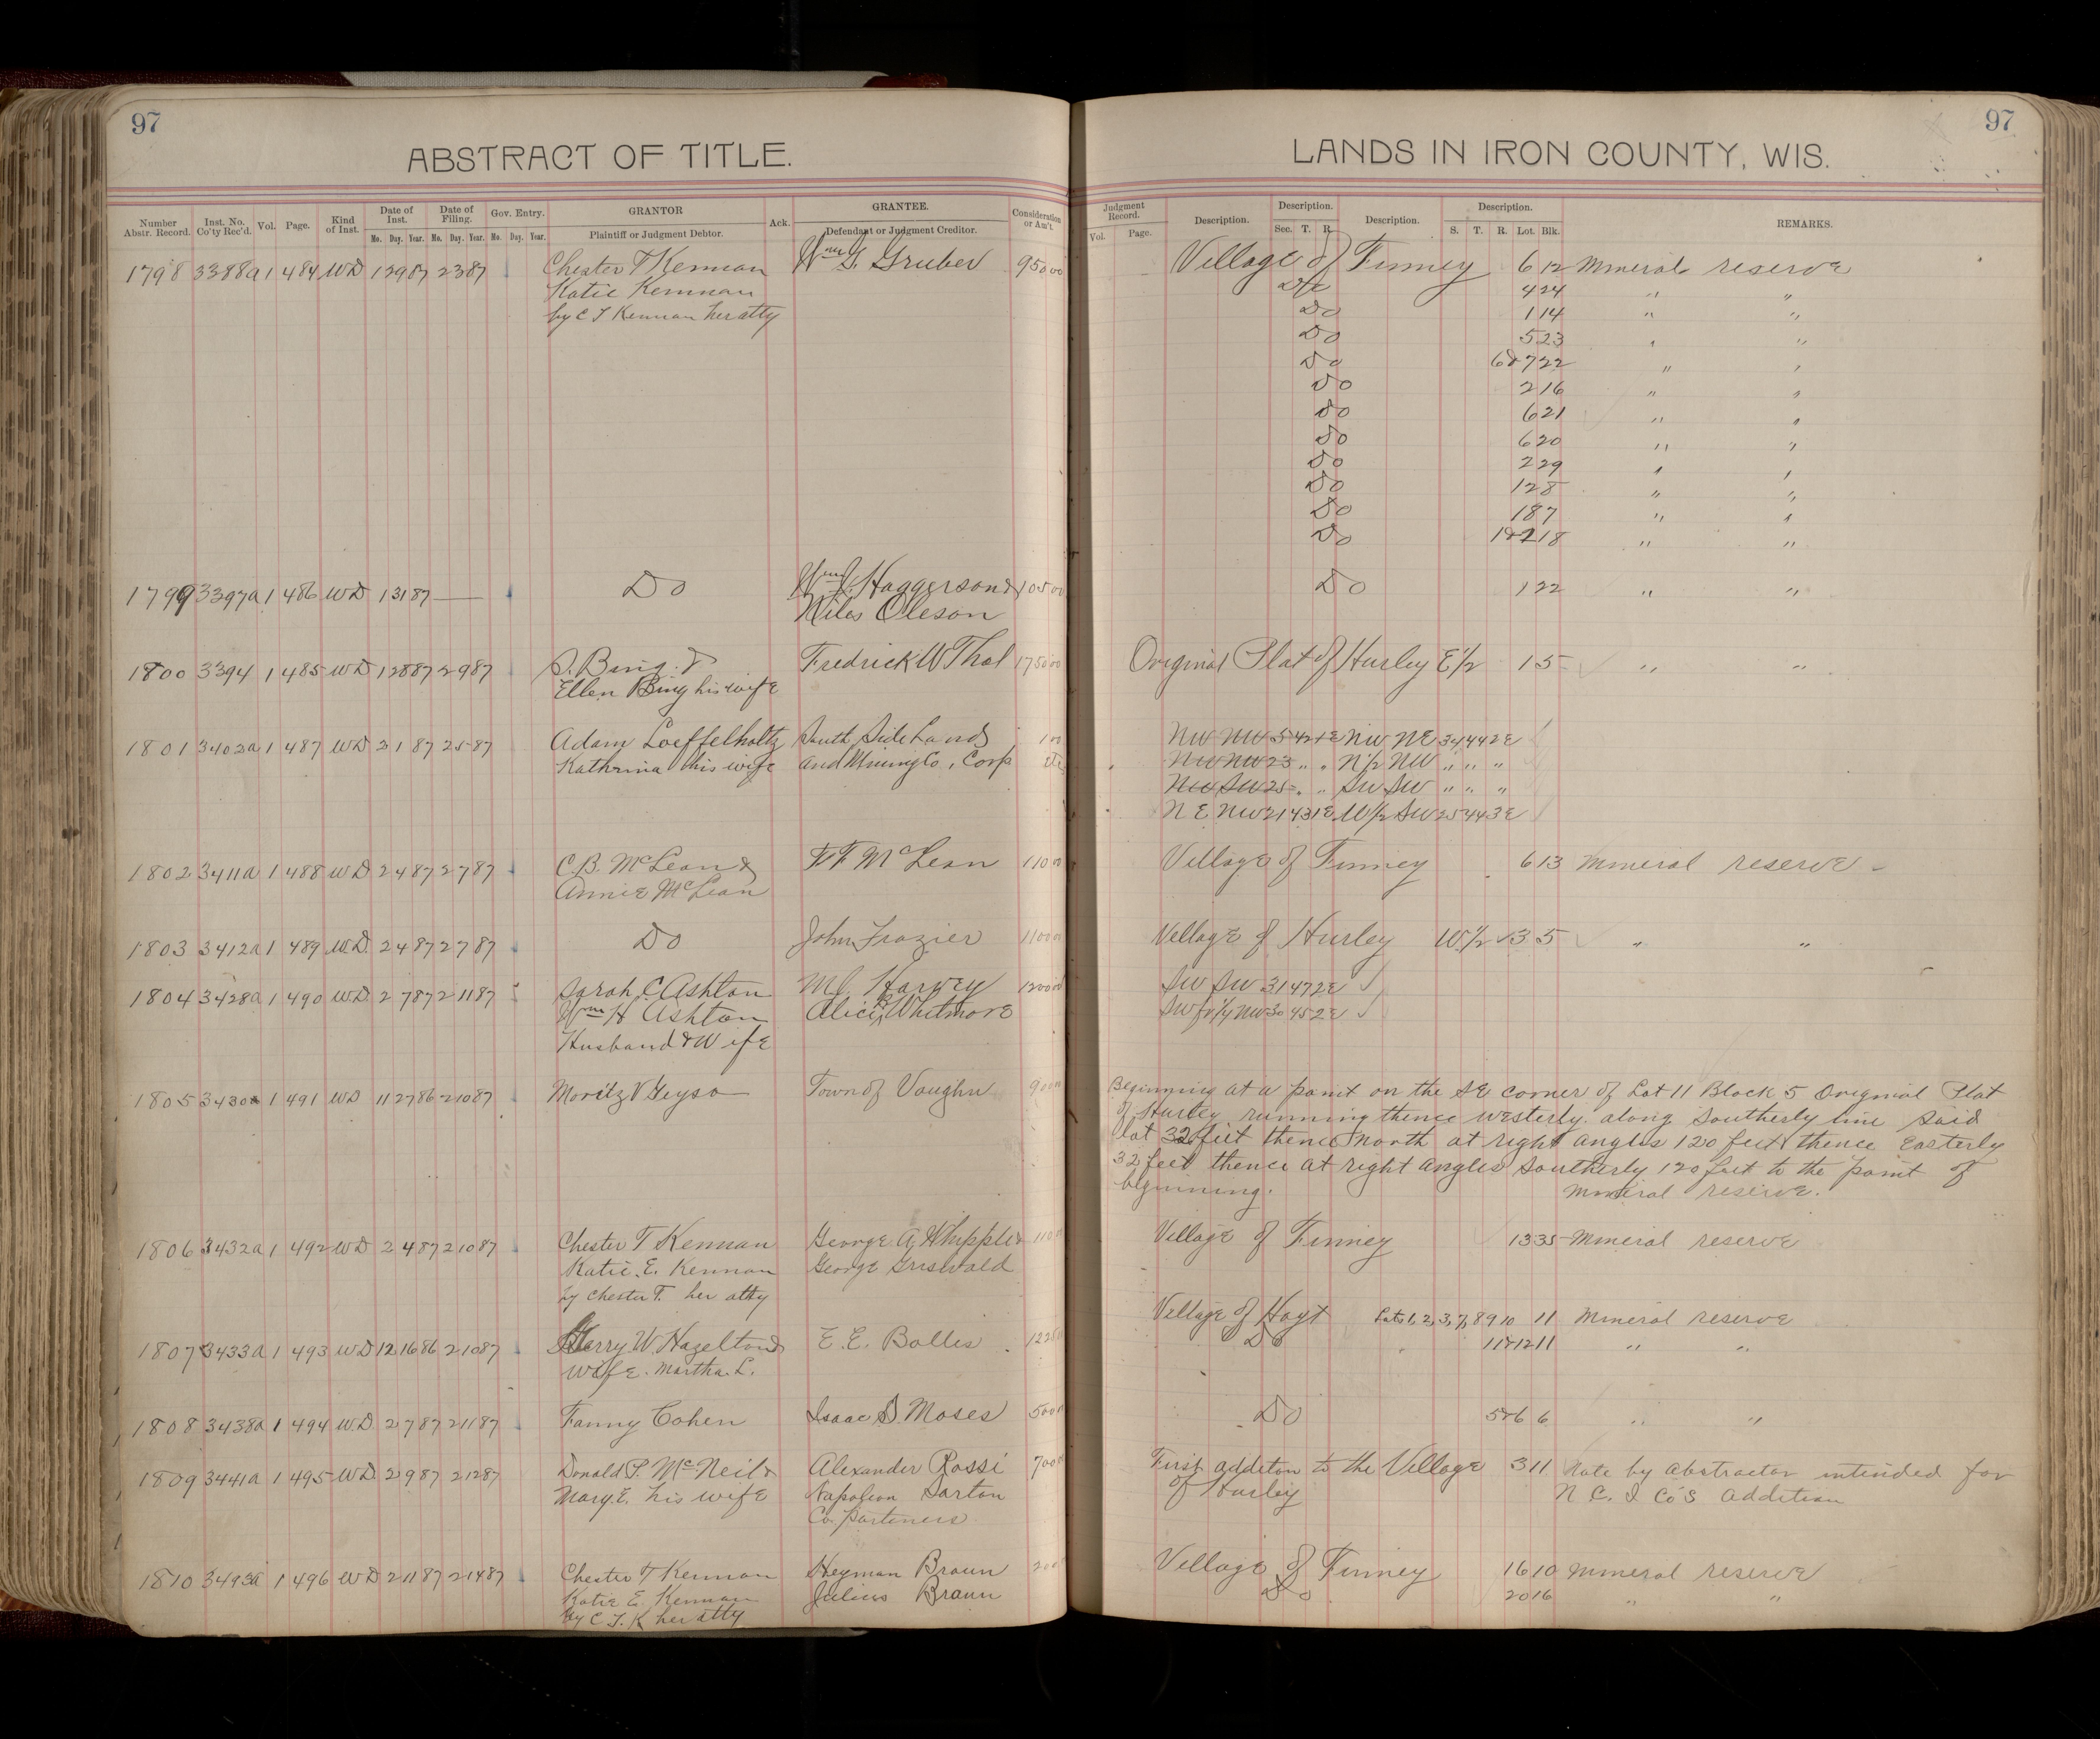 97
ABSTRACT OF TITLE.
Number Abstr. Record. Inst. No. Co'ty Rec'd. Vol. Page. Kind of Inst. Date of Inst. Mo. Day. Year. Date of Filing. Mo. Day. Year. Gov. Entry. Mo. Day. Year. GRANTOR Plaintiff or Judgment Debtor. Ack. GRANTEE. Defendant or Judgment Creditor. Consideration or Am't.
1798 3388a 1 484 WD 1 29 87 2 3 87 Chester T Kennan Wm G. Gruber 950 00
Katie Kennan
by C T Kennan her atty
1799 3397a 1 486 WD 1 31 87 Do Wm J. Haggerson & 105 00
Niles Oleson
1800 3394 1 485 WD 1 28 87 2 9 87 S. Bing & Fredrick W Thal 1750 00
Ellen Bing his wife
1801 3402a 1 487 WD 2 1 87 2 5 87 Adam Loeffelholtz South Side Lands 1 00
Kathrina his wife and Mining Co, Corp etc
1802 3411a 1 488 WD 2 4 87 2 7 87 C.B. McLean & F F McLean 110 00
Annie McLean
1803 3412a 1 489 WD 2 4 87 2 7 87 Do John Frazier 1100 00
1804 3428a 1 490 WD 2 7 87 2 11 87 Sarah C Ashton M J. Harvey 1200 00
Wm H Ashton Alice B Whitmore
Husband & Wife
1805 3430a 1 491 WD 11 27 86 2 10 87 Moritz V Geyso Town of Vaughn 900
1806 3432a 1 492 WD 2 4 87 2 10 87 Chester T Kennan George A. Whipple & 110
Katie E. Kennan George Griswald
by Chester T. her atty
1807 3433a 1 493 WD 12 16 86 2 10 87 Harry W. Hazelton & E. E. Bolles 1225
wife Martha L.
1808 3438a 1 494 W.D. 2 7 87 2 11 87 Fanny Cohen Isaac S. Moses 500
1809 3441a 1 495 WD 2 9 87 2 12 87 Donald P. McNeil & Alexander Rossi 700
Mary E. his wife Napoleon Sarton
Co partners
1810 3493a 1 496 WD 2 11 87 2 14 87 Chester T Kennan Heyman Braun 200
Katie E. Kennan Julius Braun
by C T. K her atty
97
LANDS IN IRON COUNTY, WIS.
Judgment Record. Vol. Page. Description. Description. Sec. T. R. Description. Description. S. T. R. Lot. Blk. REMARKS.
Village of Finney 6 12 Mineral reserve
Do 4 24 " "
Do 1 14 " "
Do 5 23 " "
Do 6&7 22 " "
Do 2 16 " "
Do 6 21 " "
Do 6 20 " "
Do 2 29 " "
Do 1 28 " "
Do 18 7 " "
Do 1&2 18 " "
Do 1 22 " "
Original Plat of Hurley E 1/2 1 5 " "
NW NW 5 42 1E NW NE 34 44 2E
NW NW 23 " " N 1/2 NW " " "
NW SW 25 " " SW SW " " "
NE NW 21 43 1E W 1/2 SW 25 44 3E
Village of Finney 6 13 Mineral reserve
Village of Hurley W 1/2 3 5 " "
SW SW 31 47 2E
SW fr 1/4 NW 30 45 2E
Beginning at a point on the SE corner of Lot 11 Block 5 Original Plat
of Hurley running thence westerly along Southerly line said
lot 32 feet thence North at right angles 120 feet thence Easterly
32 feet thence at right angles Southerly 120 feet to the point of
beginning. Mineral reserve.
Village of Finney 13 35 Mineral reserve
Village of Hoyt Lots 1, 2, 3, 7, 8 9 10 11 Mineral reserve
Do 11&12 11 " "
Do 5&6 6 " "
First additon to the Village 3 11 Note by abstractor intended for
of Hurley N C. I Co's Addition
Village of Finney 16 10 Mineral reserve
Do 20 16 " "